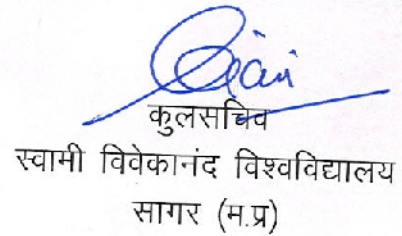 कुलसचिव
स्वामी विवेकानंद विश्वविद्यालय
सागर (म.प्र)